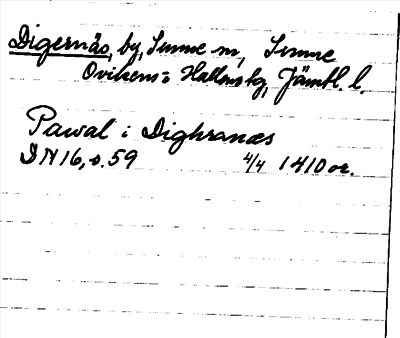 Digernäs, by, Sunne sn, Sunne
Ovikens o Hallens tg, Jämtl. l.
Pawal i Dighranæs
DN 16, s. 59 4/4 1410 or.